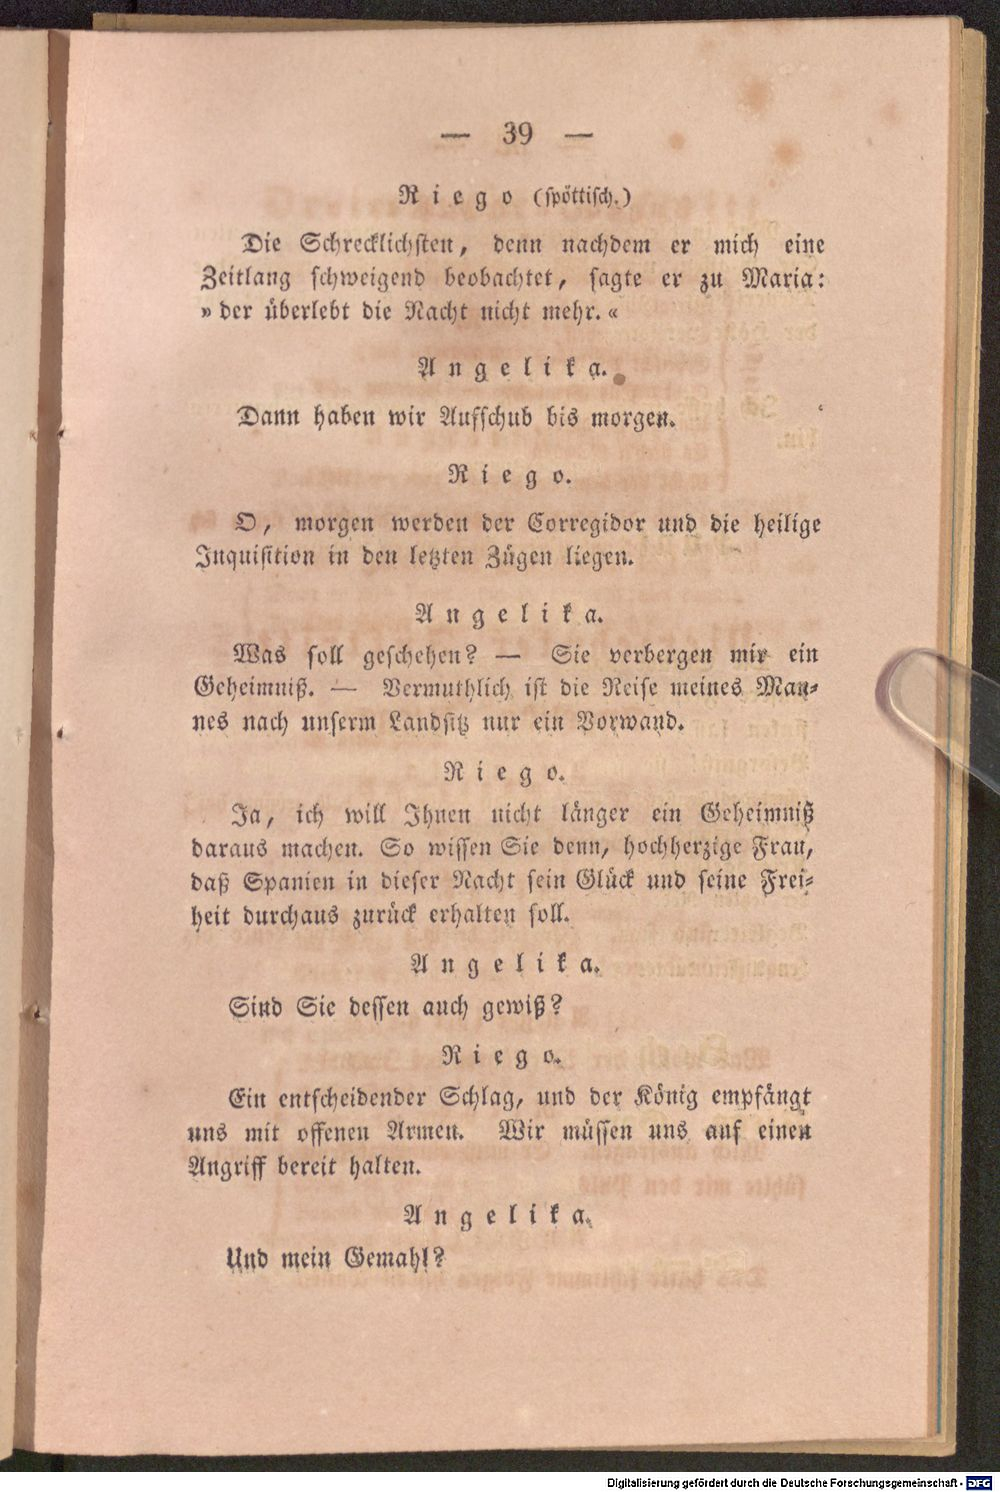 — 39 —
Riego (spöttisch.)
Die Schrecklichsten, denn nachdem er mich eine
Zeitlang schweigend beobachtet, sagte er zu Maria:
»der überlebt die Nacht nicht mehr.«
Angelika.
Dann haben wir Aufschub bis morgen.
Riego.
O, morgen werden der Corregidor und die heilige
Inquisition in den letzten Zügen liegen.
Angelika.
Was soll geschehen? — Sie verbergen mir ein
Geheimniß. — Vermuthlich ist die Reise meines Man-
nes nach unserm Landsitz nur ein Vorwand.
Riego.
Ja, ich will Ihnen nicht länger ein Geheimniß
daraus machen. So wissen Sie denn, hochherzige Frau,
daß Spanien in dieser Nacht sein Glück und seine Frei-
heit durchaus zurück erhalten soll.
Angelika.
Sind Sie dessen auch gewiß?
Riego.
Ein entscheidender Schlag, und der König empfängt
uns mit offenen Armen. Wir müssen uns auf einen
Angriff bereit halten.
Angelika.
Und mein Gemahl?
Digitalisierung gefördert durch die Deutsche Forschungsgemeinschaft - DFG